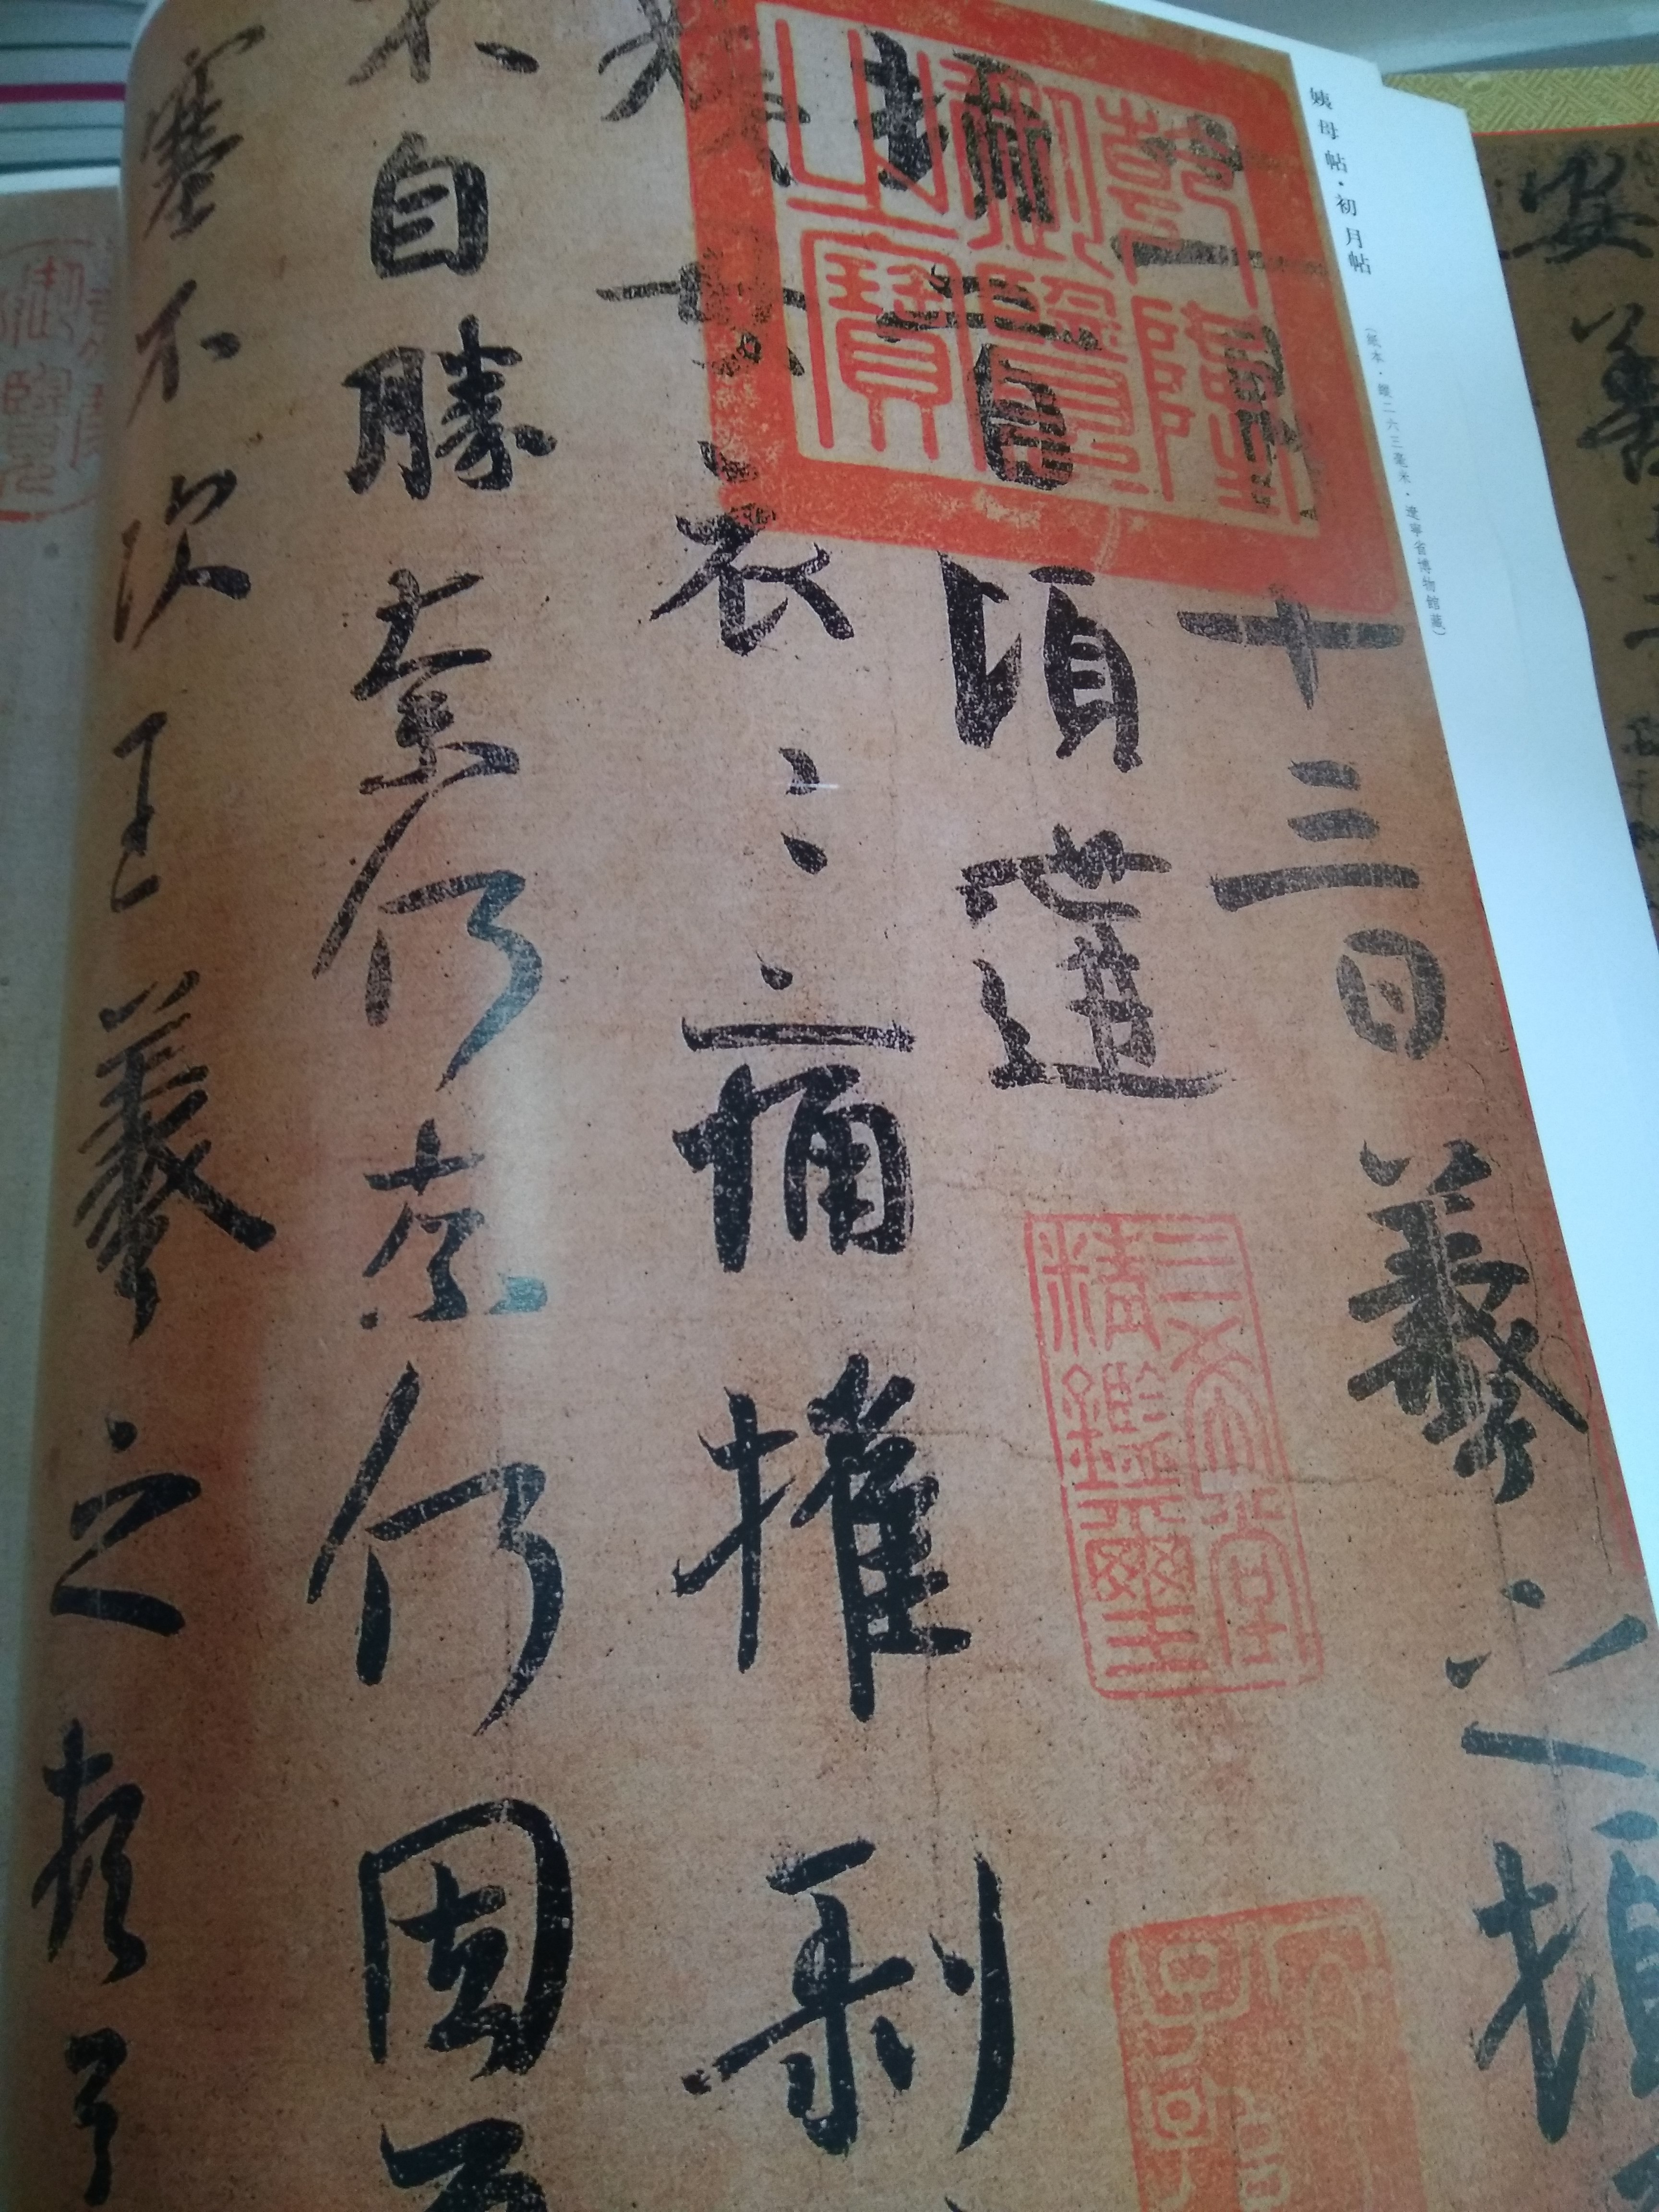 姨母帖・初月帖
(紙本・縱二六三毫米・遼寧省博物館藏)
一月十三日羲之頓
頓首頃遘
姨母哀〻痛摧剝
不自勝奈何奈何因反
塞不次王羲之頓首
乾隆御覽之寶
三希堂精鑑璽
宜子孫
安善